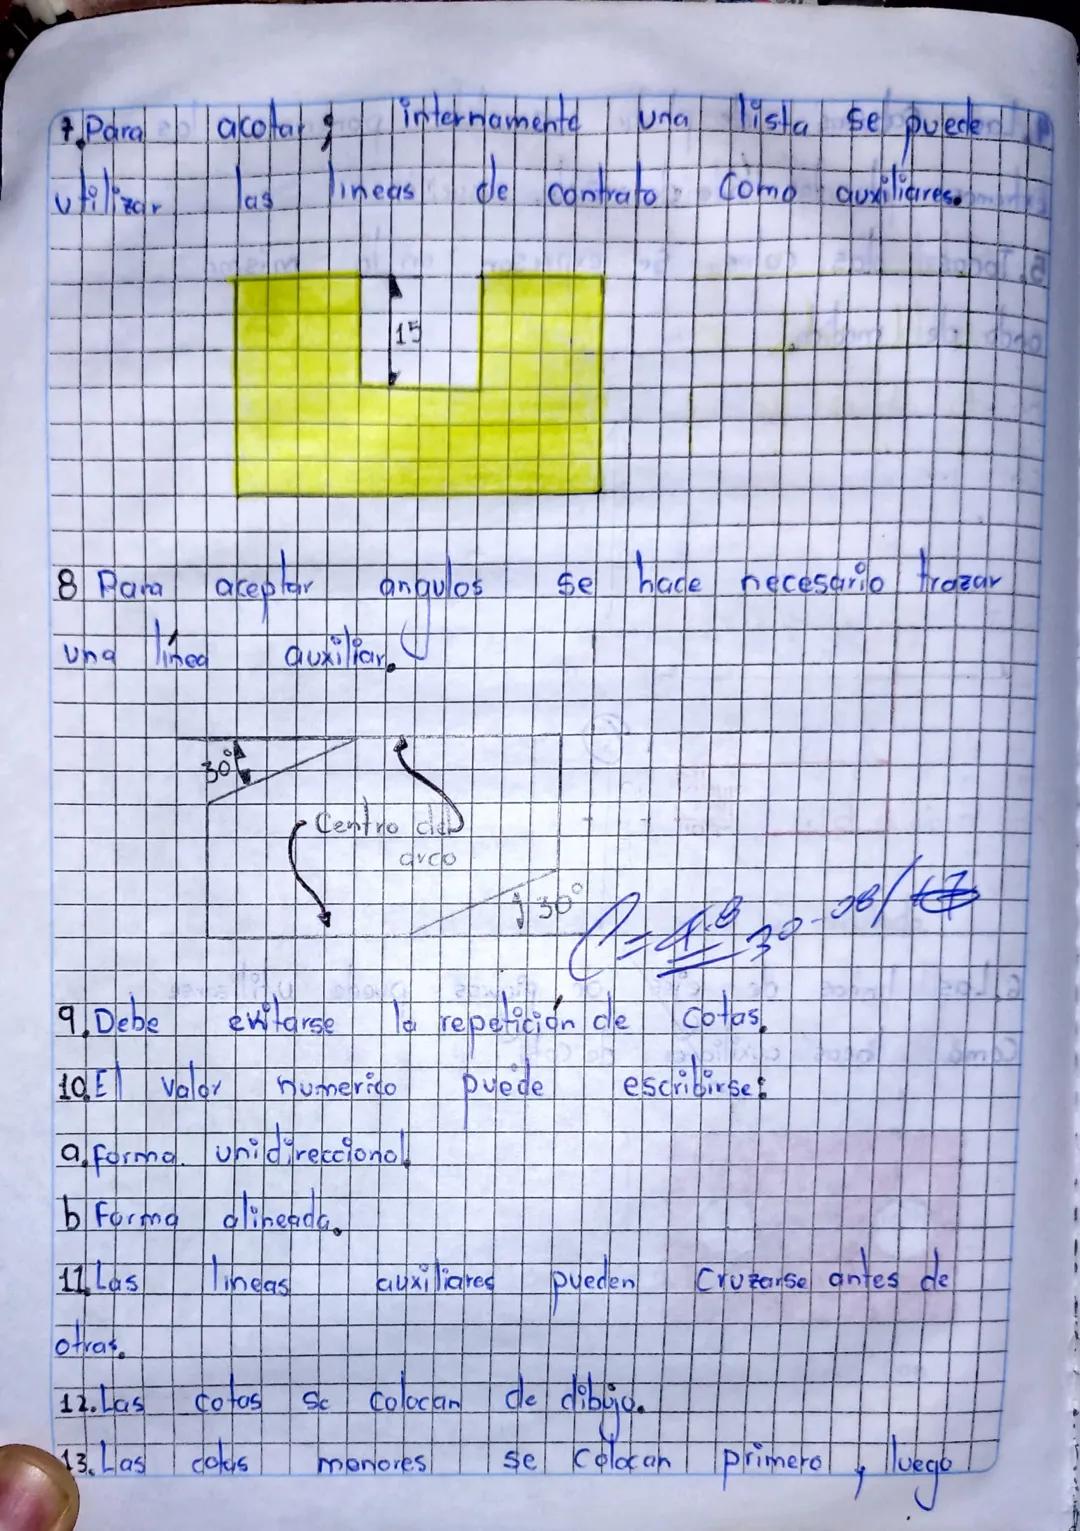 7. Para acotar internamente una lista se puede
utilizar las lineas de contrato como auxiliares.
15
8 Para aceptar angulos se hace necesario trazar
una línea auxiliar.
30°
Centro del
arco
30°
C=4.8 30-08/17
9. Debe evitarse la repetición de cotas.
10. El valor numerico puede escribirse:
a. forma. unidireccional
b Forma alineada.
11. Las lineas auxiliares pueden cruzarse antes de
otras.
12. Las cotas se colocan de dibujo.
13. Las cotas menores se colocan primero y luego